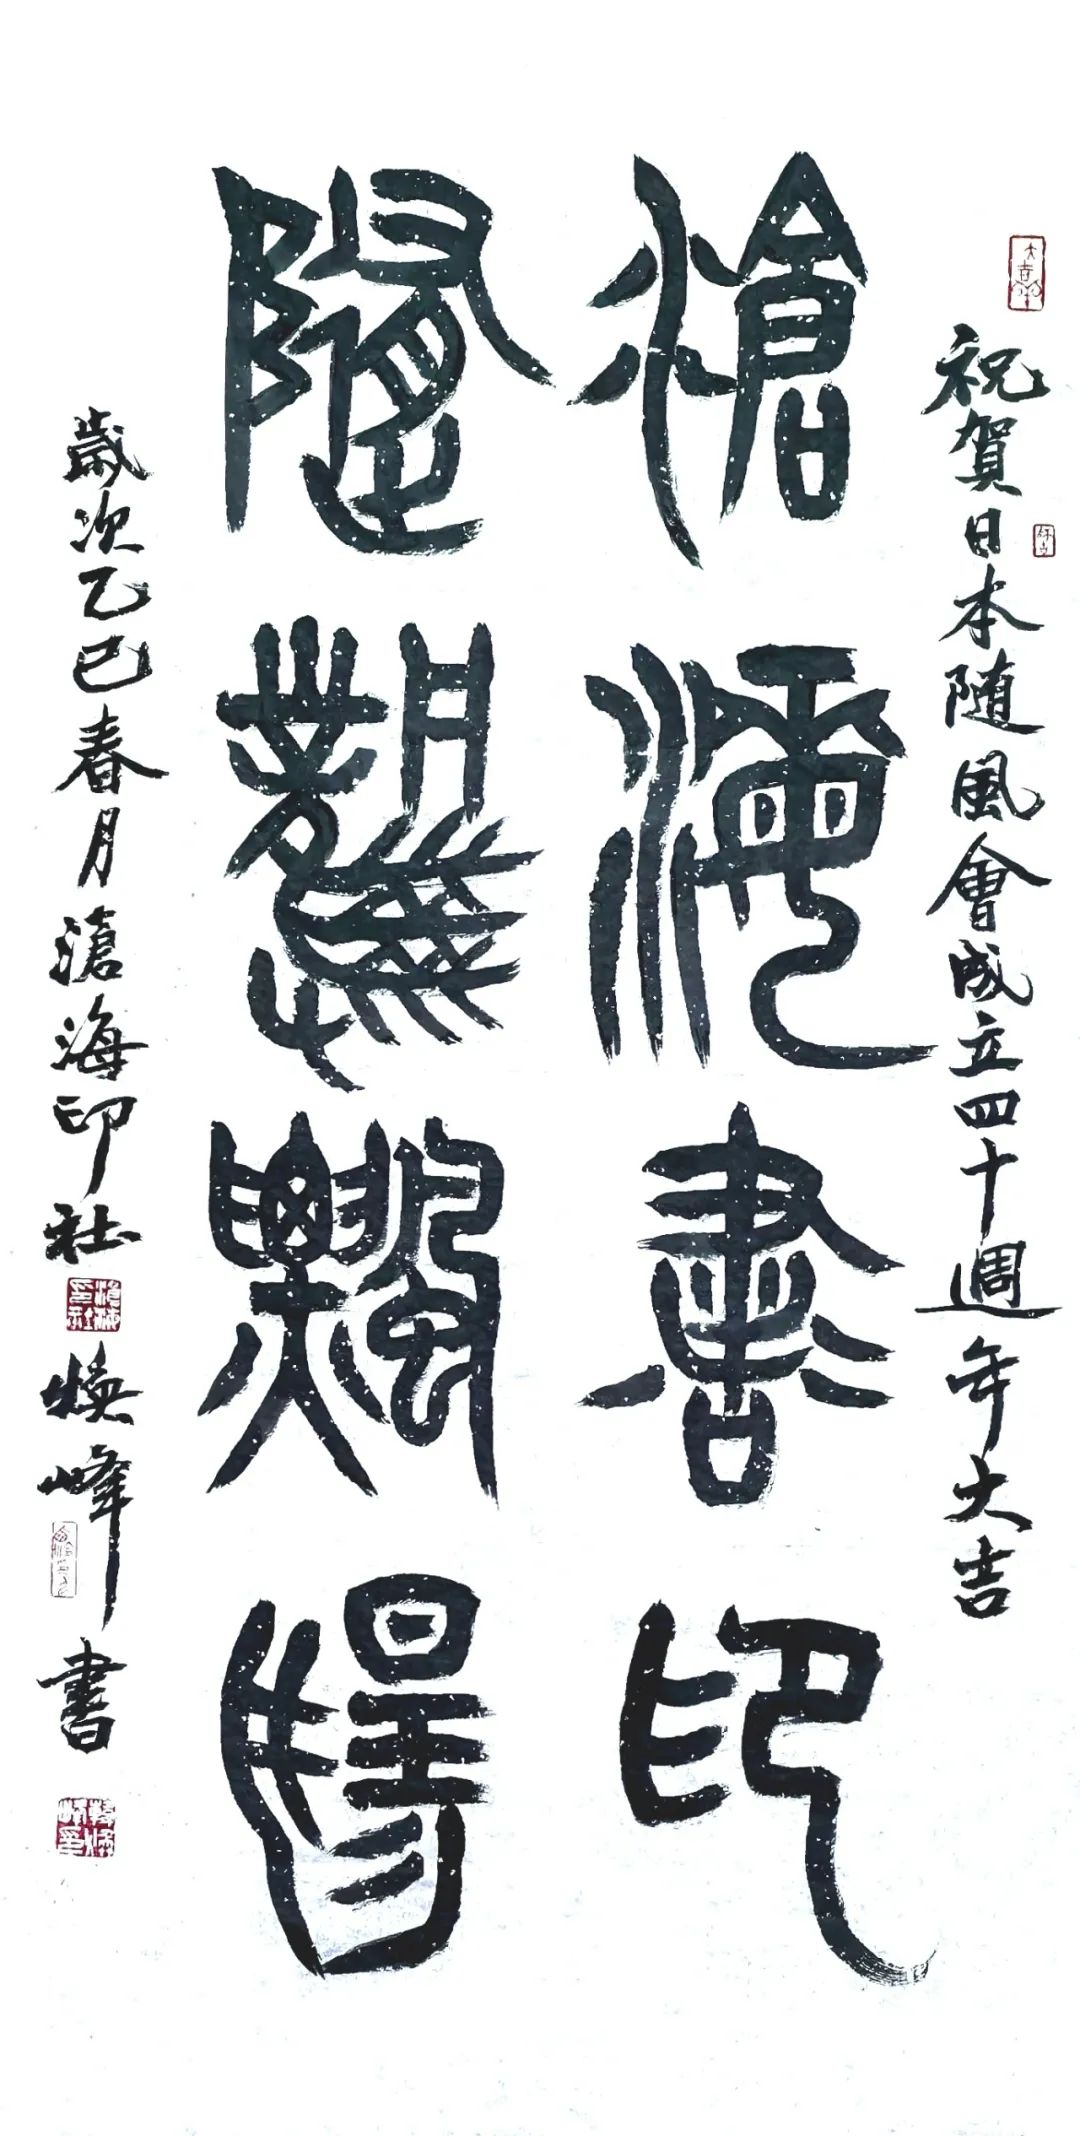 祝賀日本随風會成立四十週年大吉
滄海書印
隨飄揚
歲次乙巳春月滄海印社煥峰書
滄海印社